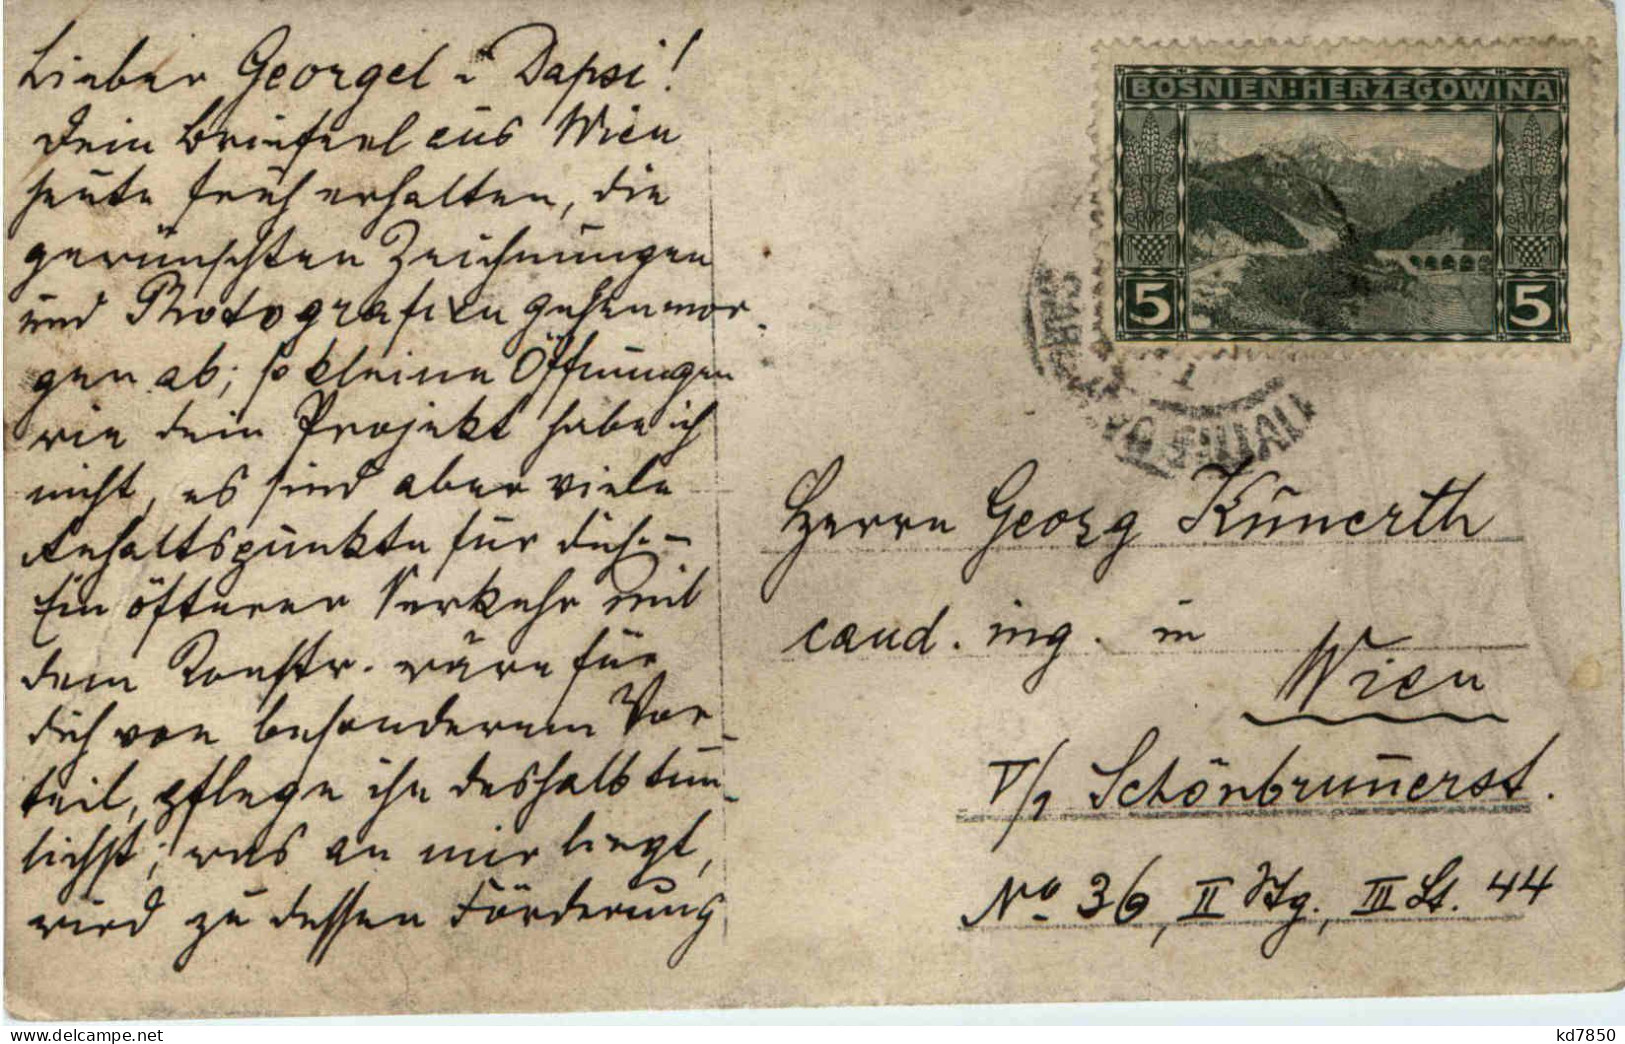 Lieber Georgel u Dapsi!
Dein Brieferl aus Wien
heute früh erhalten, die
gewünschten Zeichnungen
und Photografien gehen mor-
gen ab; so kleine Öffnungen
wie dein Projekt habe ich
nicht, es sind aber viele
Anhaltspunkte für dich. –
Ein öfterer Verkehr mit
dem Konstr. wäre für
dich von besonderem Vor-
teil, pflege ihn deshalb tun-
lichst; was an mir liegt,
wird zu dessen Förderung
BOSNIEN-HERZEGOWINA
5 5
Herrn Georg Künerth
cand. ing. in
Wien
V/1 Schönbrunerst.
No 36, II Stg., III St. 44
kd7850